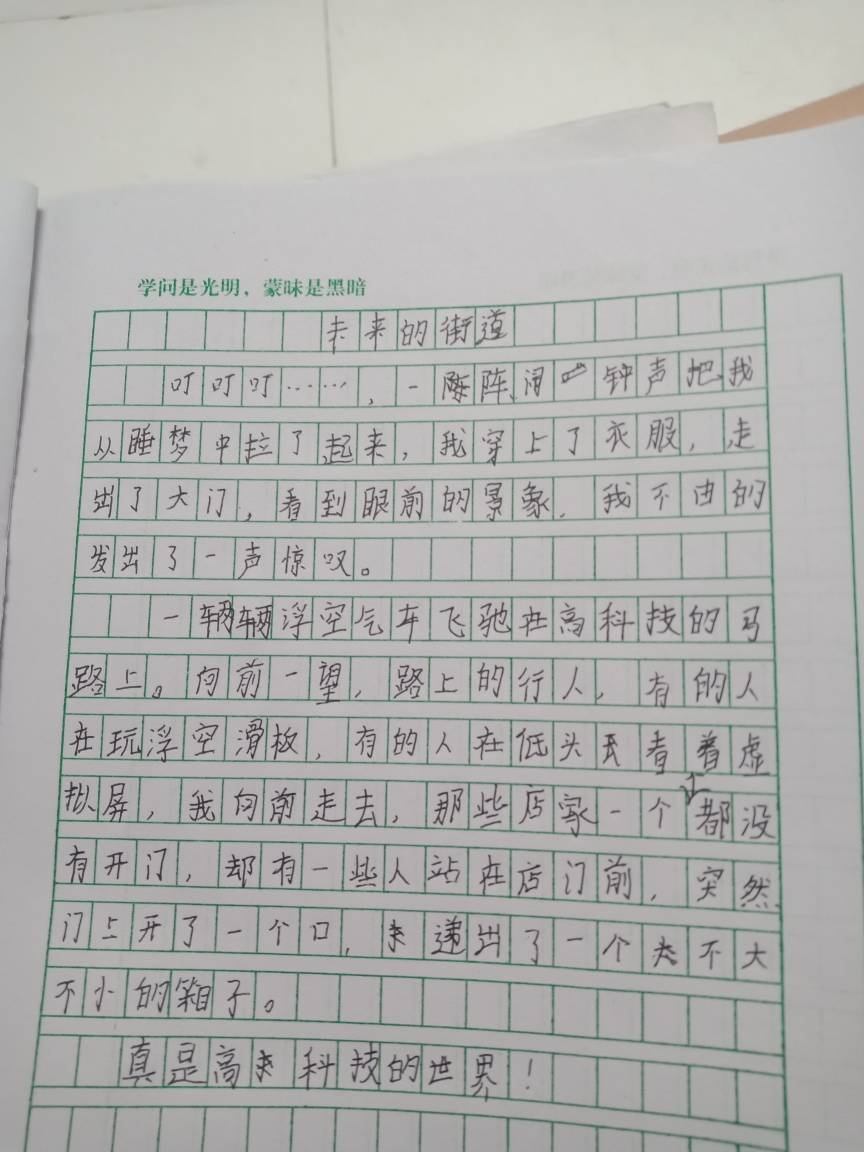 学问是光明,蒙昧是黑暗
未来的街道
叮叮叮……,一阵阵闹钟声把我
从睡梦中拉了起来,我穿上了衣服,走
出了大门,看到眼前的景象,我不由的
发出了一声惊叹。
一辆辆浮空气车飞驰在高科技的马
路上。向前一望,路上的行人,有的人
在玩浮空滑板,有的人在低头看着虚
拟屏,我向前走去,那些店家一个个都没
有开门,却有一些人站在店门前,突然
门上开了一个口,递出了一个不大
不小的箱子。
真是高科技的世界!